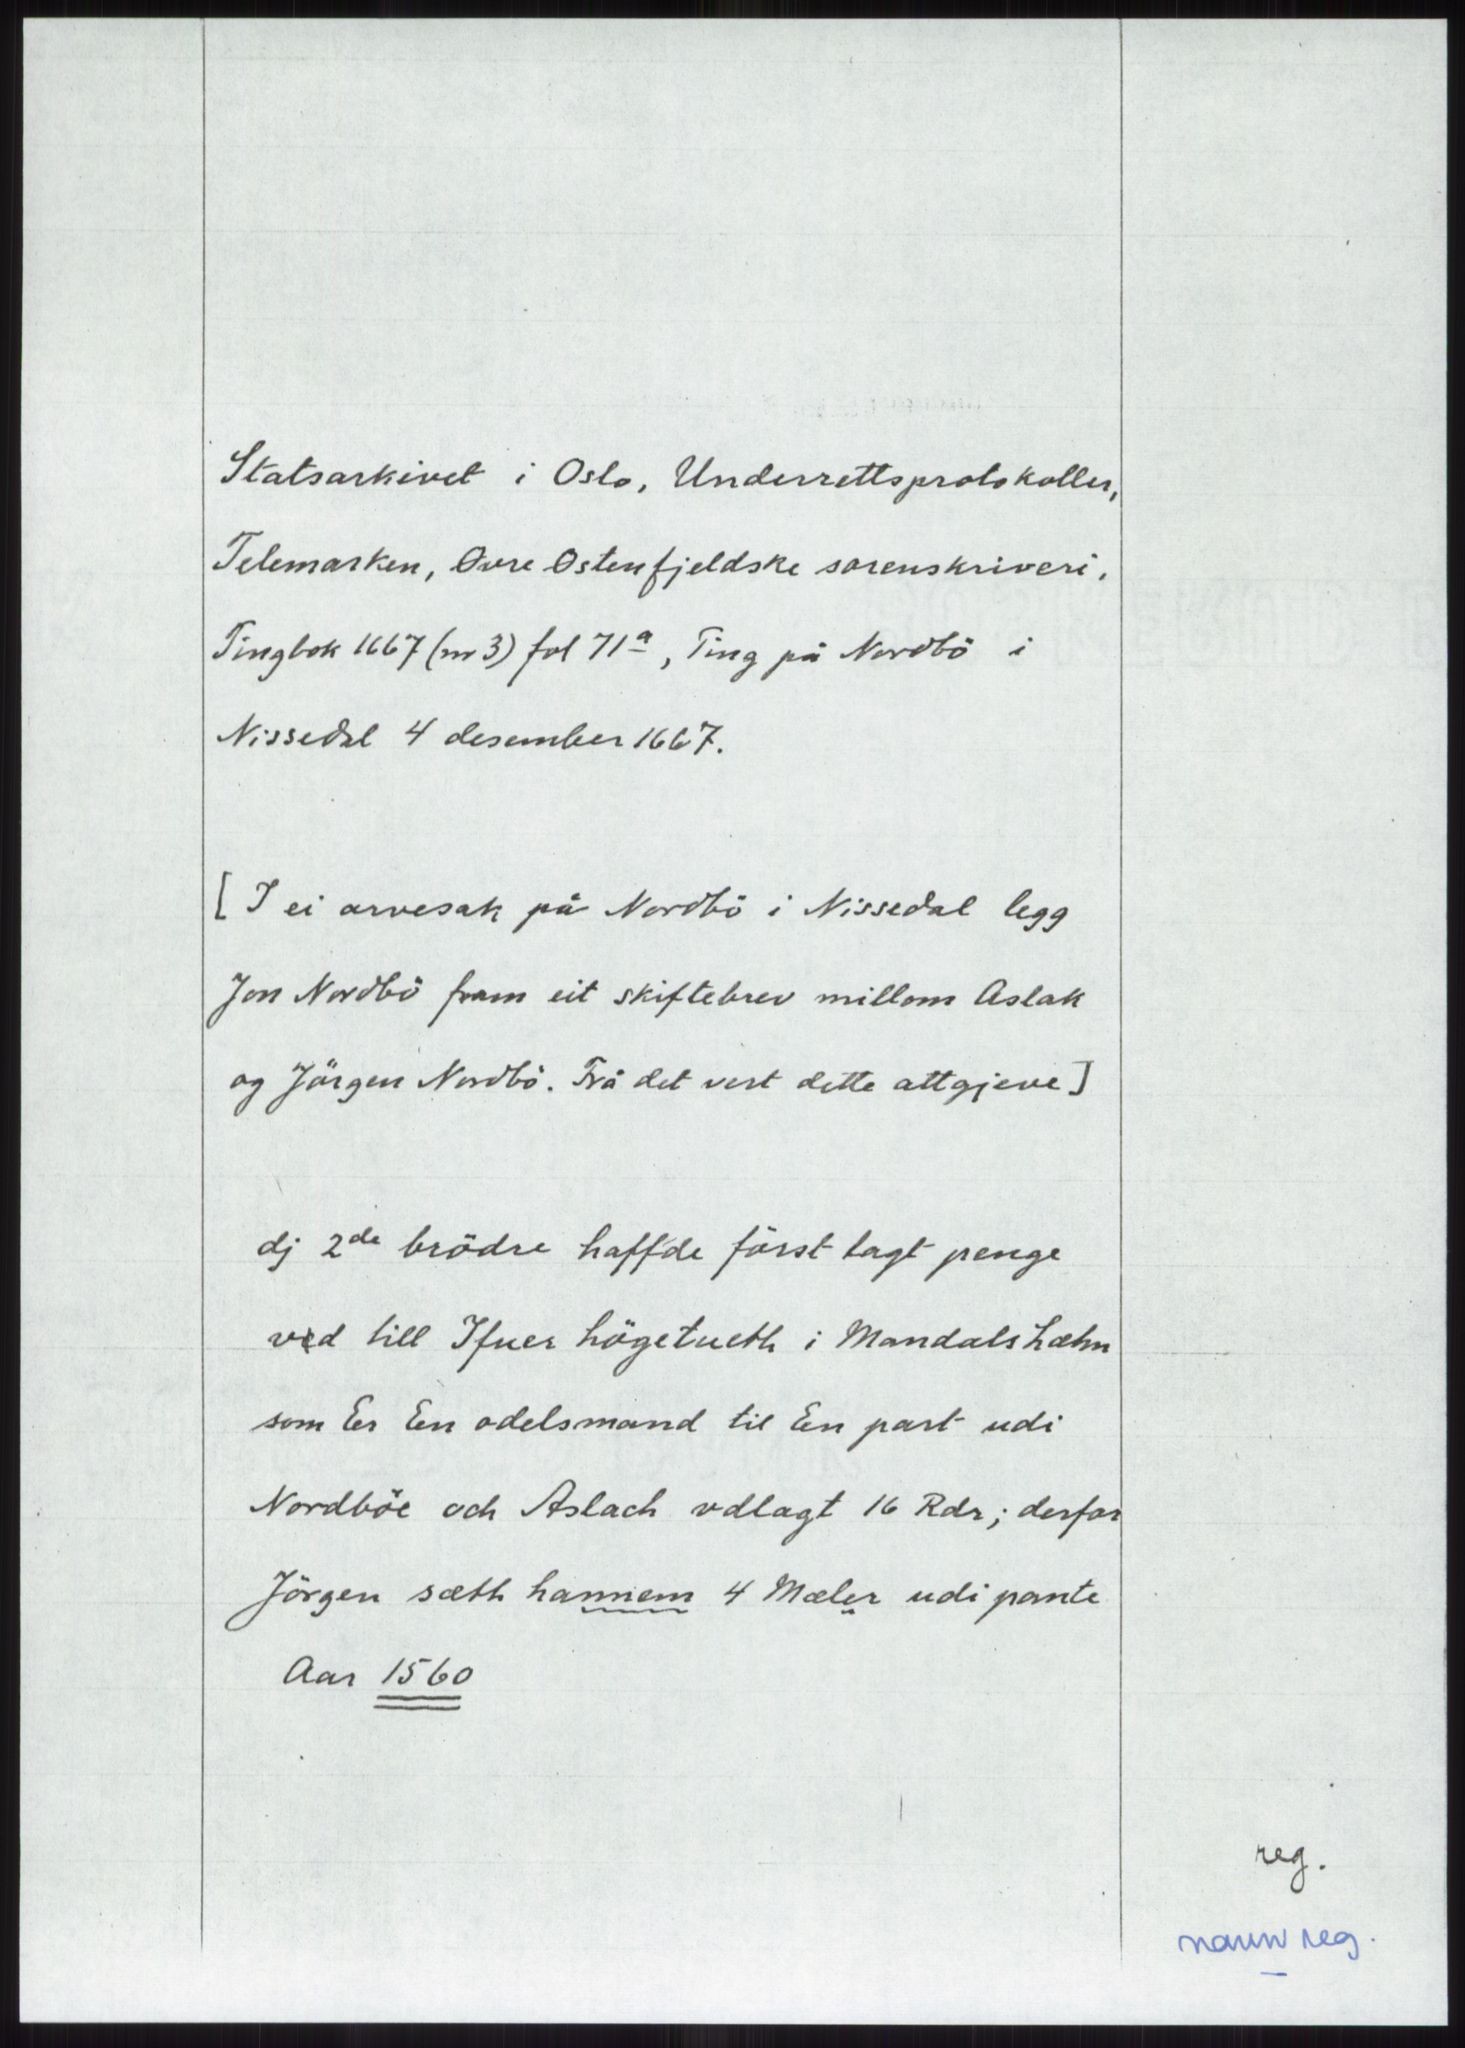 Statsarkivet i Oslo, Underrettsprotokoller,
Telemarken, Øvre Østenfjeldske sorenskriveri.
Tingbok 1667 (nr 3) fol 71a, Ting på Nordbö i
Nissedal 4 desember 1667.
[ I ei arvesak på Nordbö i Nissedal legg
Jon Nordbö fram eit skiftebrev millom Aslak
og Jörgen Nordbö. Frå det vert dette attgjeve ]
dj 2de brödre haffde först lagt penge
vd till Ifuer högetueth i Mandals Læhn
som Er En odelsmand til En part udi
Nordböe och Aslach vdlagt 16 Rdr; derfor
Jörgen sæth hannem 4 Mæler udi pante
Aar 1560
reg.
namn reg.